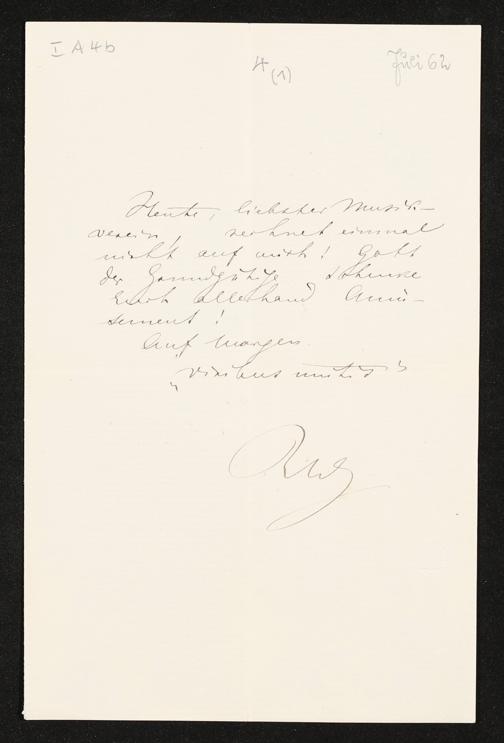 I A 4b
4
(1)
Juli 62
Heute, liebster Musik-
verein, rechnet einmal
nicht auf mich! Gott
der Grundgütige schenke
Euch allerhand Amü-
sement!
Auf morgen.
„viribus unitis"